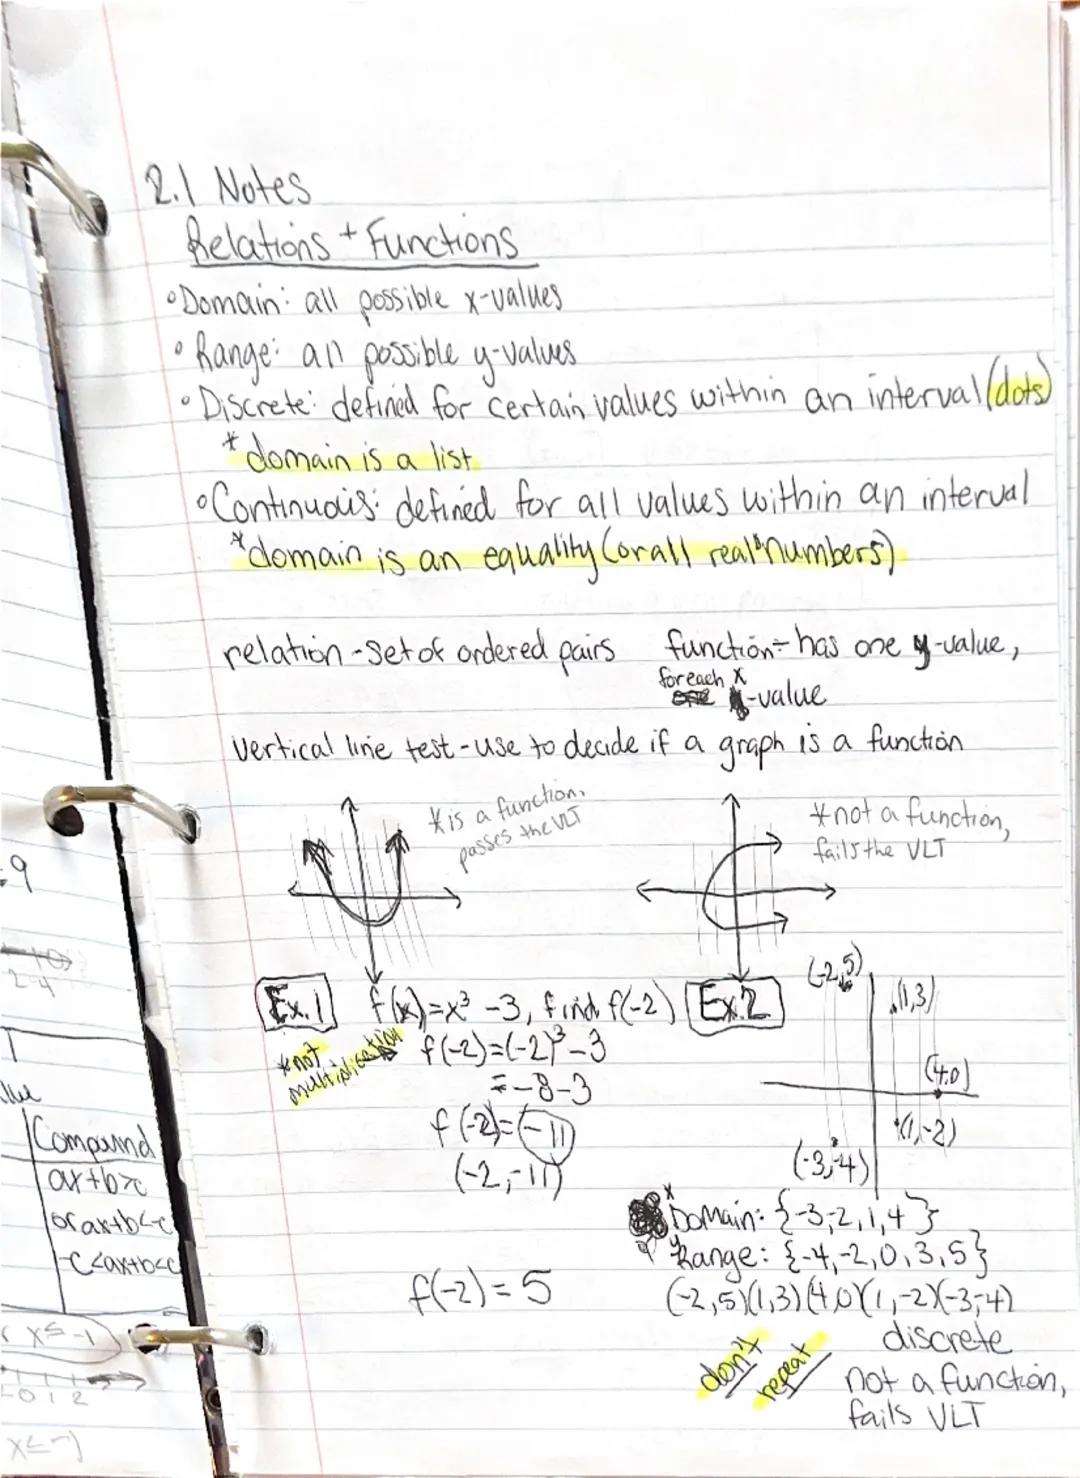 2.1 Notes
Relations + Functions
• Domain: all possible x-values
• Range: all possible y-values
• Discrete: defined for certain values within an interval (dots)
* domain is a list
• Continuous: defined for all values within an interval
* domain is an equality (or all real numbers)
relation - set of ordered pairs
function - has one y-value,
for each x
-value
vertical line test - use to decide if a graph is a function
* is a function,
passes the VLT
* not a function,
fails the VLT
Ex. 1 f(x)=x³ -3, find f(-2)
* not
multiplication
f(-2)=(-2)³-3
= -8-3
f(-2)=-11
(-2,-11)
f(-2)=5
Ex. 2
(-2,5)
(1,3)
(4,0)
(1,-2)
(-3,-4)
x
Domain: {-3,-2,1,4}
y
Range: {-4,-2,0,3,5}
(-2,5)(1,3)(4,0)(1,-2)(-3,-4)
don't
repeat
discrete
not a function,
fails VLT
9
2 4
Compound
ax+b>c
or ax+b<-c
-c<ax+b<c
x≤-1
0 1 2